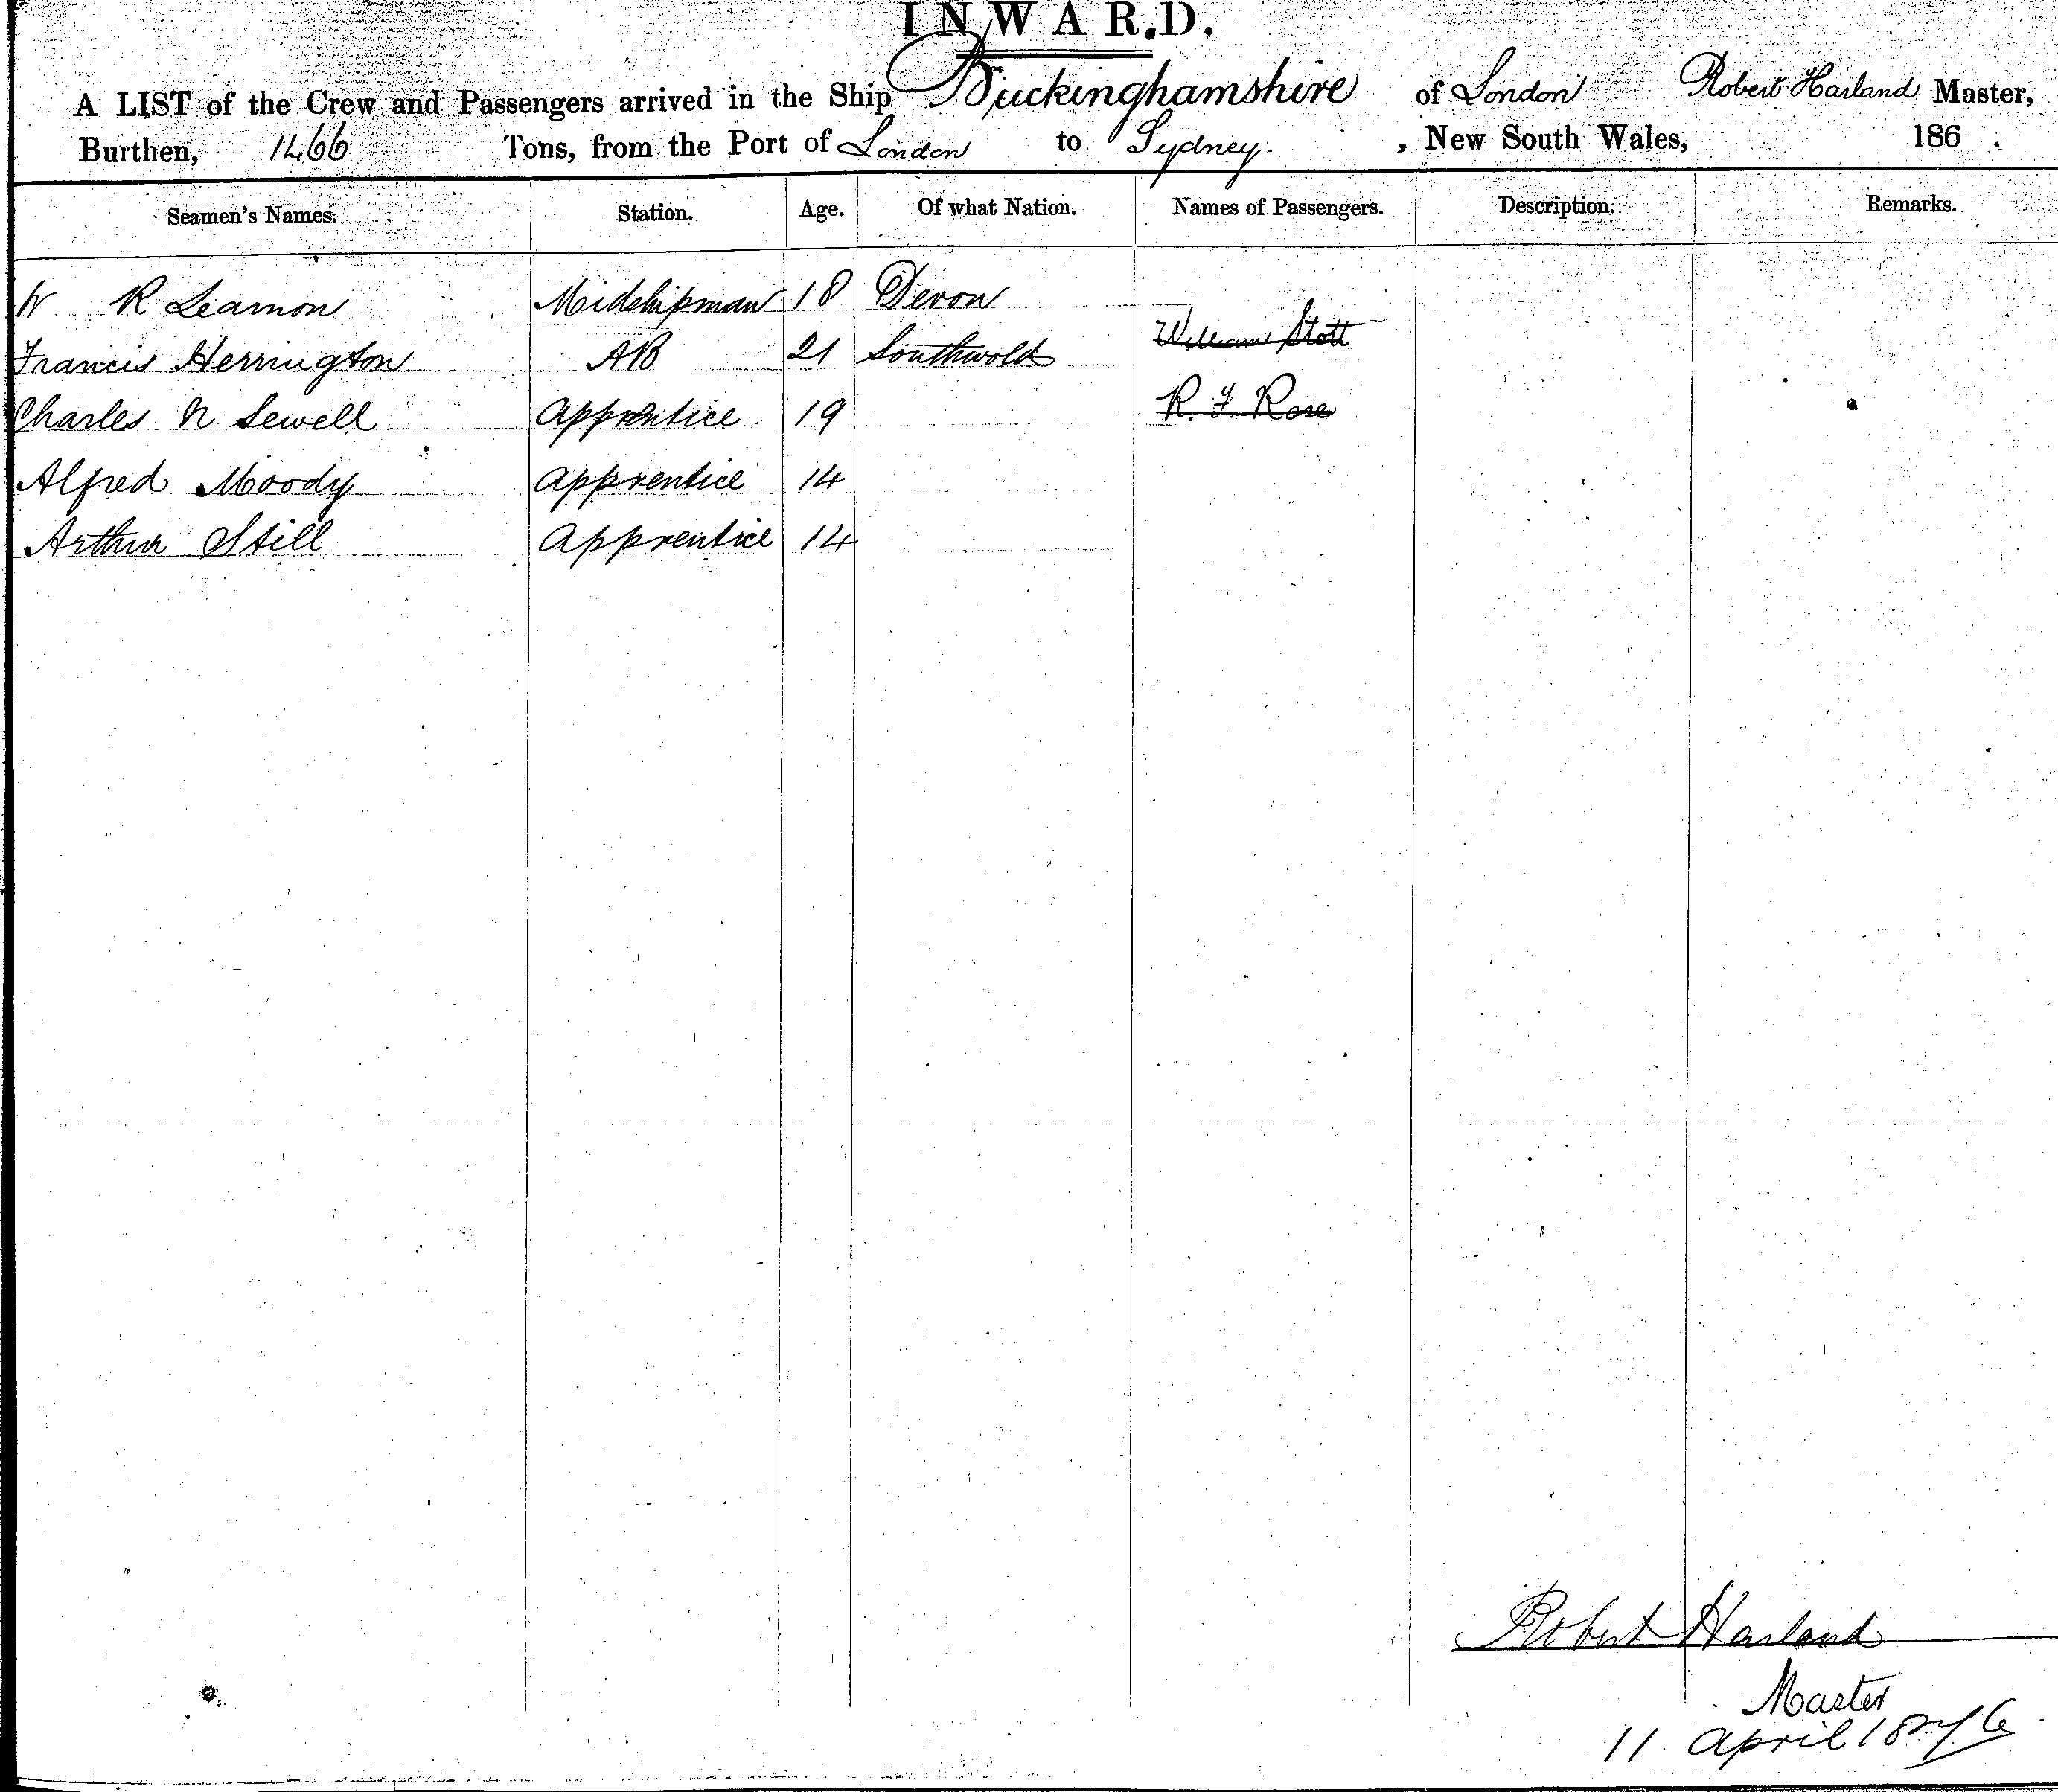 INWARD.
A LIST of the Crew and Passengers arrived in the Ship Buckinghamshire of London Robert Harland Master,
Burthen, 1466 Tons, from the Port of London to Sydney. , New South Wales, 186 .
Seamen's Names. Station. Age. Of what Nation. Names of Passengers. Description. Remarks.
W R Leamon Midshipman 18 Devon
William Stott
Francis Herrington AB 21 Southwold
R. F. Rose
Charles N Sewell Apprentice 19
Alfred Moody Apprentice 14
Arthur Still Apprentice 14
Robert Harland
Master
11 April 1876